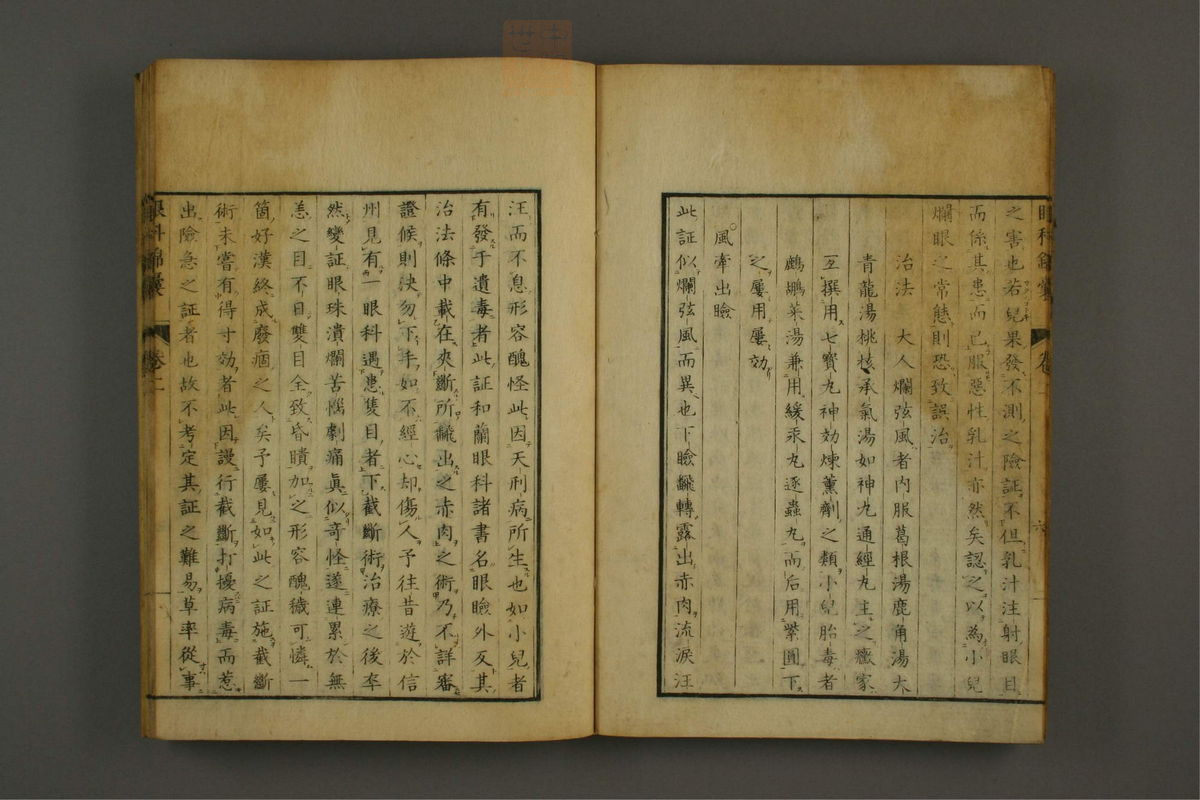 之害也若兒果發不測之險証不但乳汁注射眼目
而係其患而已服惡性乳汁亦然矣認之以為小兒
爛眼之常態則恐致誤治
治法 大人爛弦風者內服葛根湯鹿角湯大
青龍湯桃核承氣湯如神丸通經丸主之黴家
互撰用七寶丸神効煉薰劑之類小兒胎毒者
鷓鴣菜湯兼用緩汞丸逐蟲丸而后用紫圓下
之屢用屢効
風牽出瞼
此証似爛弦風而異也下瞼飜轉露出赤肉流淚汪
汪而不息形容醜怪此因天刑病所生也如小兒者
有發于遺毒者此証和蘭眼科諸書名眼瞼外反其
治法條中載在夾斷所飜出之赤肉之術乃不詳審
證候則決勿下手如不經心却傷人予往昔遊於信
州見有一眼科遇患隻目者下截斷術治療之後卒
然變証眼珠潰爛苦惱劇痛真似奇怪遂連累於無
恙之目不日雙目全致昏瞶加之形容醜穢可憐一
箇好漢終成廢痼之人矣予屢見如此之証施截斷
術未嘗有得寸効者此因謾行截斷打擾病毒而惹
出險急之証者也故不考定其証之難易草率從事
眼科錦囊 卷二